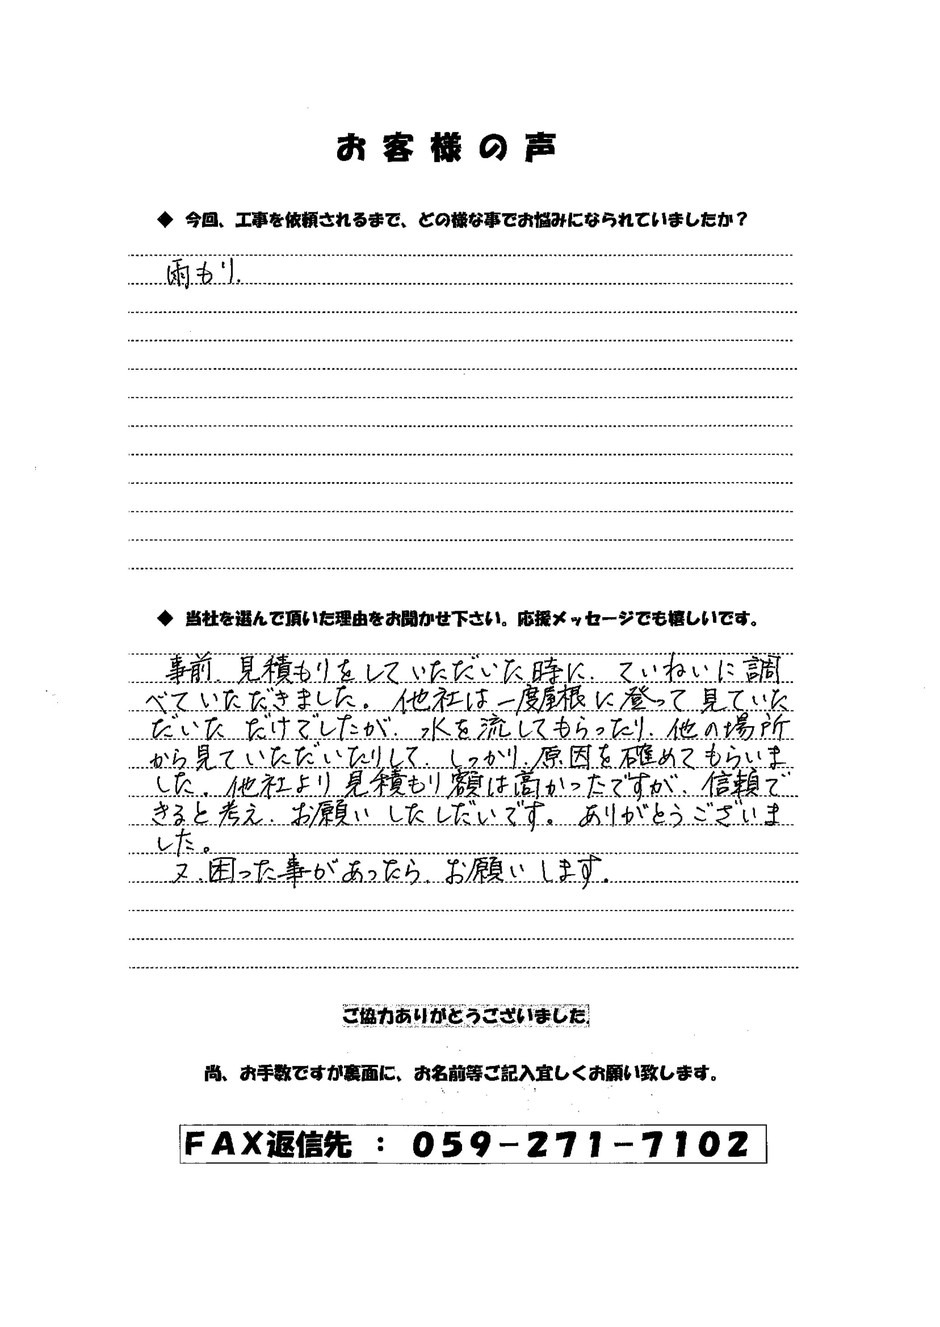 お客様の声
◆ 今回、工事を依頼されるまで、どの様な事でお悩みになられていましたか？
雨もり.
◆ 当社を選んで頂いた理由をお聞かせ下さい。応援メッセージでも嬉しいです。
事前、見積もりをしていただいた時に、ていねいに調
べていただきました。他社は一度屋根に登って見ていた
だいた だけでしたが、水を流してもらったり、他の場所
から見ていただいたりして、しっかり、原因を確めてもらいま
した。他社より見積もり額は高かったですが、信頼で
きると考え、お願い したしだいです。ありがとうございま
した。
又、困った事があったら、お願いします。
ご協力ありがとうございました
尚、お手数ですが裏面に、お名前等ご記入宜しくお願い致します。
FAX返信先 : 059-271-7102